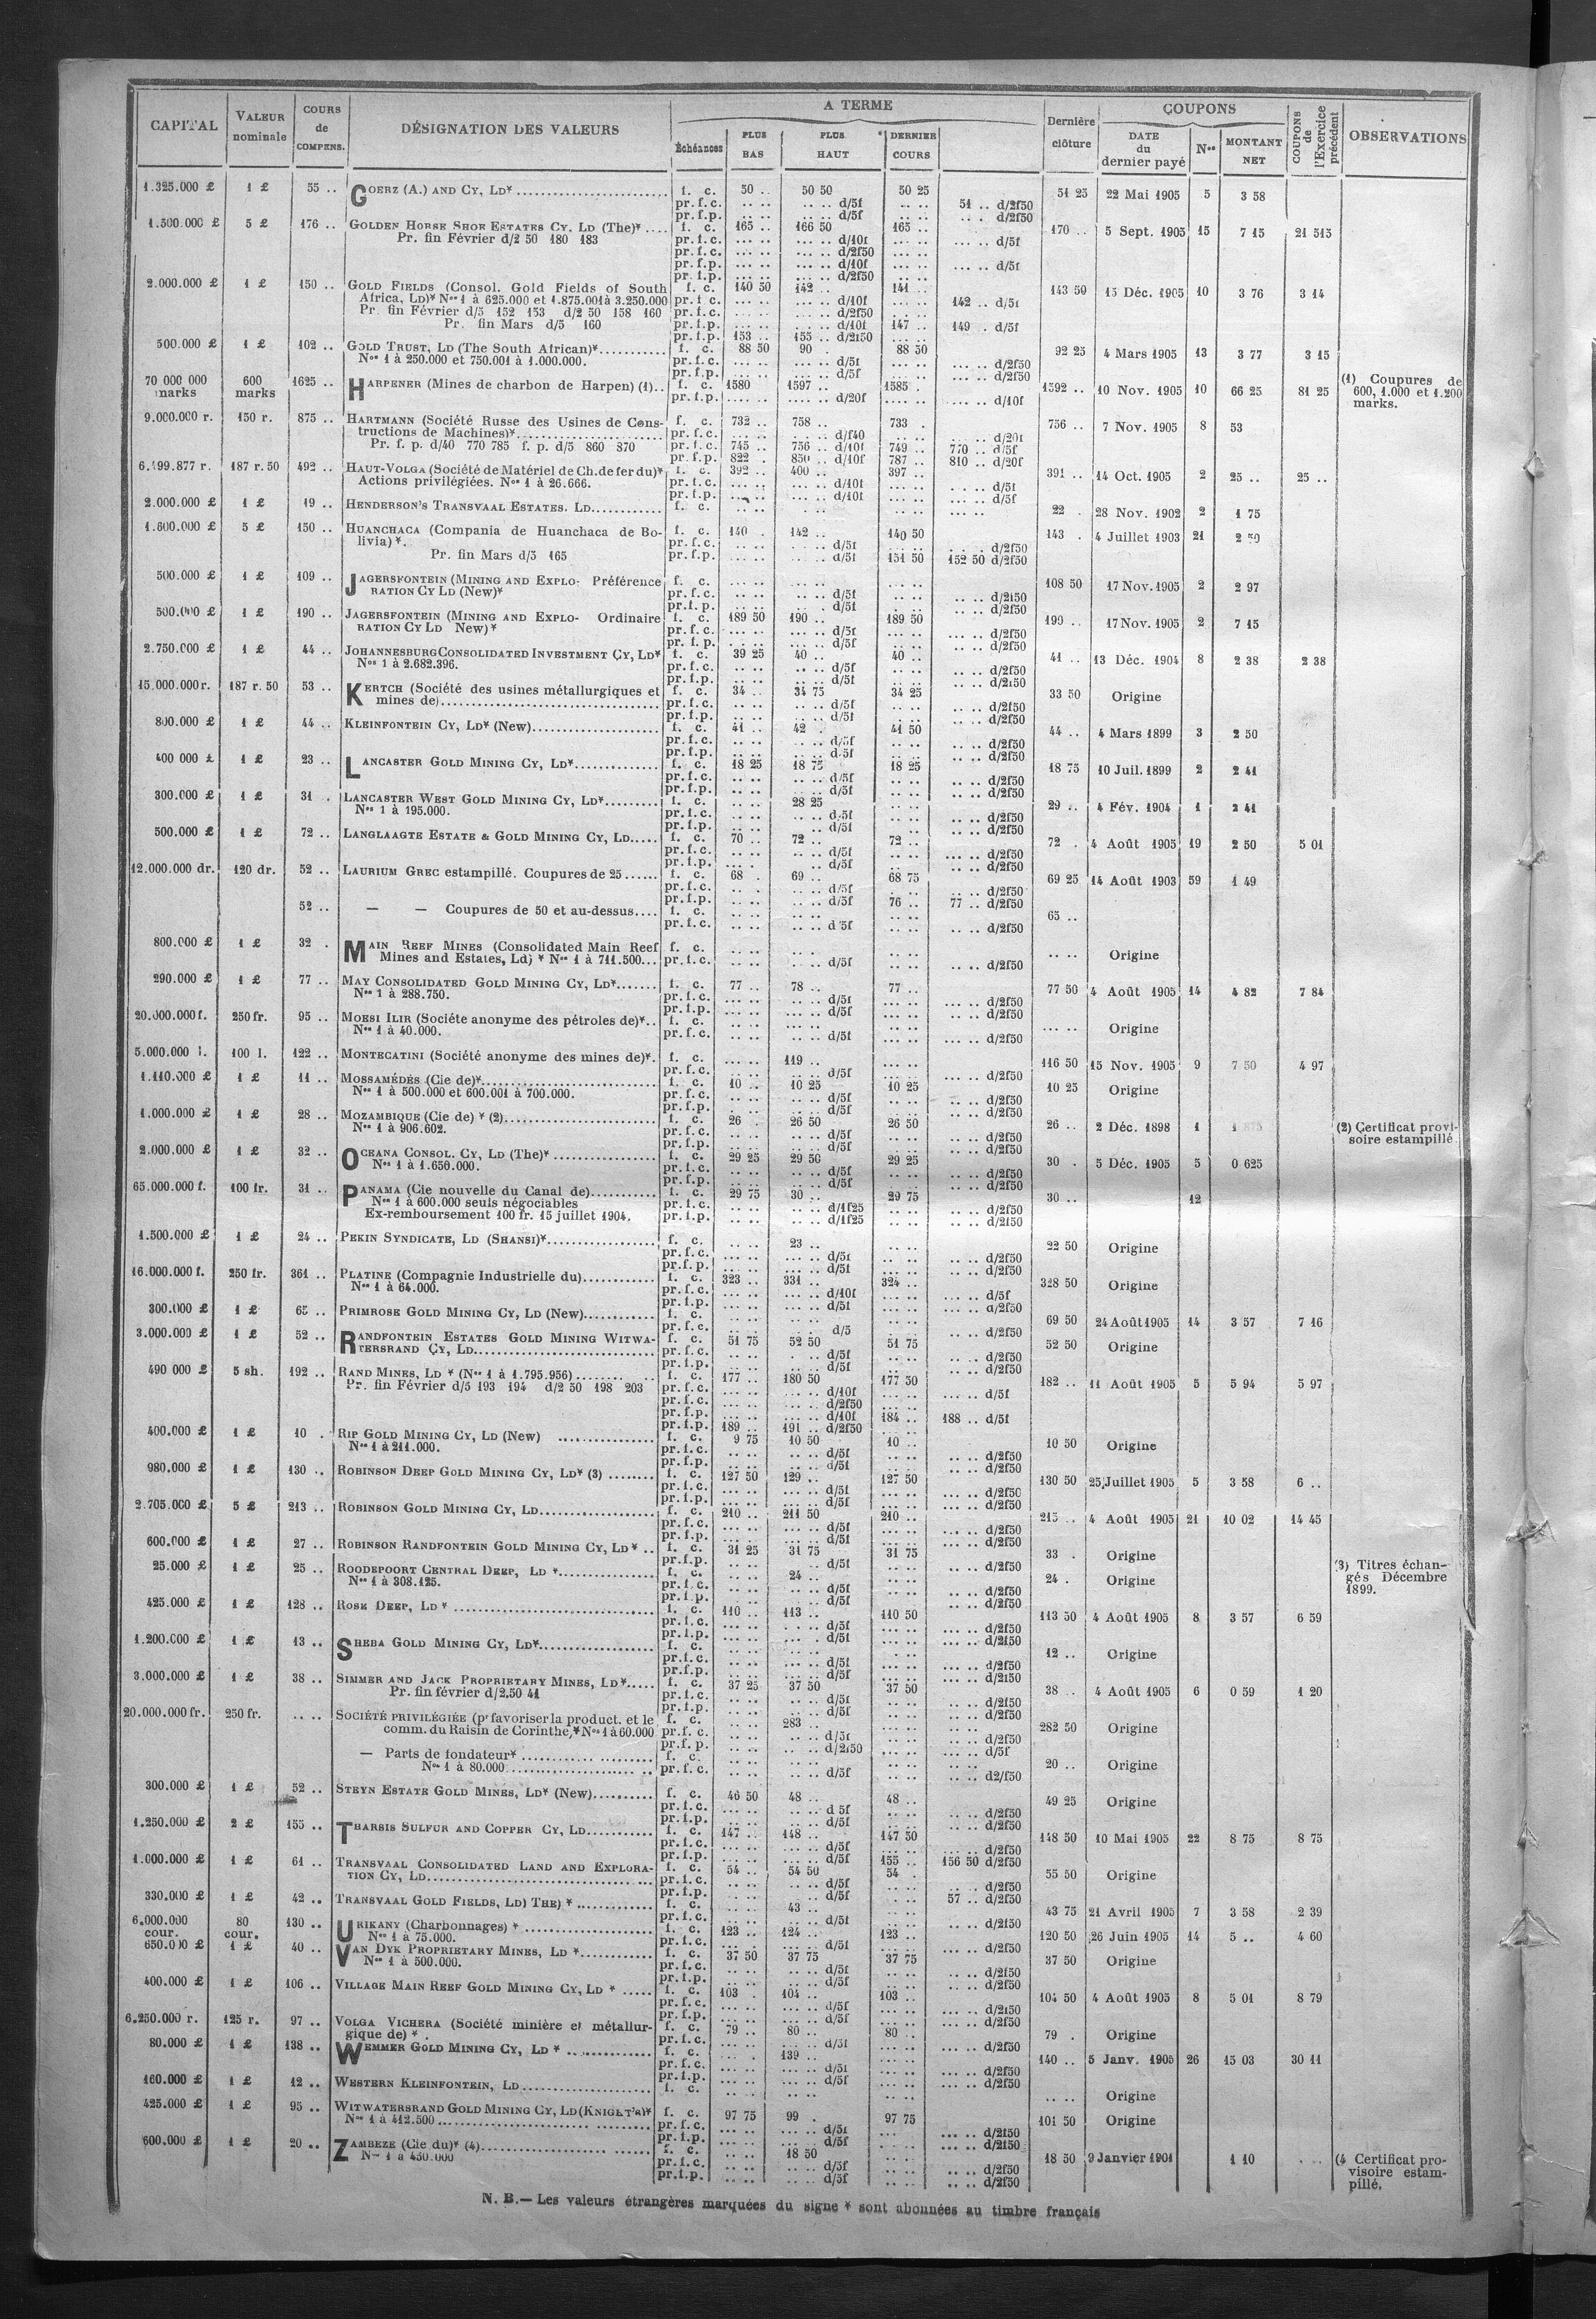 CAPITAL VALEUR nominale COURS de COMPENS. DÉSIGNATION DES VALEURS A TERME Échéances PLUS BAS PLUS HAUT DERNIER COURS Dernière clôture COUPONS DATE du dernier payé Nos MONTANT NET COUPONS de l'Exercice précédent OBSERVATIONS
1.325.000 £ 1 £ 55 .. GOERZ (A.) AND CY, LD* f. c. 50 .. 50 50 50 25 51 25 22 Mai 1905 5 3 58
pr. f.c. .. .. .. .. d/5f .. .. 51 .. d/2f50
pr. f.p. .. .. .. .. d/5f .. .. d/2f50
1.500.000 £ 5 £ 176 .. GOLDEN HORSE SHOE ESTATES CY. LD (The)* .... f. c. 165 .. 166 50 165 .. 170 .. 5 Sept. 1905 15 7 15 21 515
Pr. fin Février d/2 50 180 183 pr. f.c. d/10f d/5f
pr. f.c. d/2f50
pr. f.p. d/10f d/5f
pr. f.p. d/2f50
2.000.000 £ 1 £ 150 .. GOLD FIELDS (Consol. Gold Fields of South f. c. 140 50 142 .. 141 .. 143 50 15 Déc. 1905 10 3 76 3 14
Africa, LD)* Nos 1 à 625.000 et 1.875.001 à 3.250.000 pr. f.c. d/10f 142 .. d/5f
Pr. fin Février d/5 152 153 d/2 50 158 160 pr. f.c. d/2f50
Pr. fin Mars d/5 160 pr. f.p. d/10f 147 .. 149 . d/5f
pr. f.p. 153 .. 155 .. d/2f50
500.000 £ 1 £ 102 .. GOLD TRUST, LD (The South African)* f. c. 88 50 90 . 88 50 92 25 4 Mars 1905 13 3 77 3 15
Nos 1 à 250.000 et 750.001 à 1.000.000. pr. f.c. d/5f d/2f50
pr. f.p. d/5f d/2f50
70 000 000 marks 600 marks 1625 .. HARPENER (Mines de charbon de Harpen) (1).. f. c. 1580 1597 .. 1585 . 1592 .. 10 Nov. 1905 10 66 25 81 25 (1) Coupures de 600, 1.000 et 1.200 marks.
pr. f.p. d/20f d/10f
9.000.000 r. 150 r. 875 .. HARTMANN (Société Russe des Usines de Cons- f. c. 732 .. 758 .. 733 . 756 .. 7 Nov. 1905 8 53
tructions de Machines)* pr. f.c. d/f40 d/20f
Pr. f. p. d/40 770 785 f. p. d/5 860 870 pr. f.c. 745 .. 756 .. d/10f 749 .. 770 .. d/5f
pr. f.p. 822 . 850 .. d/10f 787 .. 810 .. d/20f
6.199.877 r. 187 r. 50 492 .. HAUT-VOLGA (Société de Matériel de Ch. de fer du)* f. c. 392 .. 400 .. 397 .. 391 .. 14 Oct. 1905 2 25 .. 25 ..
Actions privilégiées. Nos 1 à 26.666. pr. f.c. d/10f d/5f
pr. f.p. d/10f d/5f
2.000.000 £ 1 £ 19 .. HENDERSON'S TRANSVAAL ESTATES. LD f. c. 22 . 28 Nov. 1902 2 1 75
1.600.000 £ 5 £ 150 .. HUANCHACA (Compania de Huanchaca de Bo- f. c. 140 . 142 .. 140 50 143 . 4 Juillet 1903 21 2 50
livia) *. pr. f.c. d/5f d/2f50
Pr. fin Mars d/5 165 pr. f.p. d/5f 151 50 152 50 d/2f50
500.000 £ 1 £ 109 .. JAGERSFONTEIN (MINING AND EXPLO- Préférence f. c. 108 50 17 Nov. 1905 2 2 97
RATION CY LD (New)* pr. f.c. d/5f d/2f50
pr. f.p. d/5f d/2f50
500.000 £ 1 £ 190 .. JAGERSFONTEIN (MINING AND EXPLO- Ordinaire f. c. 189 50 190 .. 189 50 190 .. 17 Nov. 1905 2 7 15
RATION CY LD New)* pr. f.c. d/5f d/2f50
pr. f.p. d/5f d/2f50
2.750.000 £ 1 £ 44 .. JOHANNESBURG CONSOLIDATED INVESTMENT CY, LD* f. c. 39 25 40 .. 40 .. 41 .. 13 Déc. 1904 8 2 38 2 38
Nos 1 à 2.682.396. pr. f.c. d/5f d/2f50
pr. f.p. d/5f d/2f50
15.000.000 r. 187 r. 50 53 .. KERTCH (Société des usines métallurgiques et f. c. 34 .. 34 75 34 25 33 50 Origine
mines de) pr. f.c. d/5f d/2f50
pr. f.p. d/5f d/2f50
800.000 £ 1 £ 44 .. KLEINFONTEIN CY, LD* (New) f. c. 41 .. 42 . 41 50 44 .. 4 Mars 1899 3 2 50
pr. f.c. d/5f d/2f50
pr. f.p. d/5f d/2f50
400 000 £ 1 £ 23 .. LANCASTER GOLD MINING CY, LD* f. c. 18 25 18 75 18 25 18 75 10 Juil. 1899 2 2 41
pr. f.c. d/5f d/2f50
pr. f.p. d/5f d/2f50
300.000 £ 1 £ 31 . LANCASTER WEST GOLD MINING CY, LD* f. c. 28 25 29 .. 4 Fév. 1904 1 2 41
Nos 1 à 195.000. pr. f.c. d/5f d/2f50
pr. f.p. d/5f d/2f50
500.000 £ 1 £ 72 .. LANGLAAGTE ESTATE & GOLD MINING CY, LD f. c. 70 .. 72 .. 72 .. 72 . 4 Août 1905 19 2 50 5 01
pr. f.c. d/5f d/2f50
pr. f.p. d/5f d/2f50
12.000.000 dr. 120 dr. 52 .. LAURIUM GREC estampillé. Coupures de 25 f. c. 68 . 69 .. 68 75 69 25 14 Août 1903 59 1 49
pr. f.c. d/5f d/2f50
pr. f.p. d/5f 76 .. 77 .. d/2f50
52 .. — — Coupures de 50 et au-dessus.... f. c. 65 ..
pr. f.c. d/5f d/2f50
800.000 £ 1 £ 32 . MAIN REEF MINES (Consolidated Main Reef f. c. Origine
Mines and Estates, Ld) * Nos 1 à 711.500... pr. f.c. d/5f d/2f50
290.000 £ 1 £ 77 .. MAY CONSOLIDATED GOLD MINING CY, LD* f. c. 77 .. 78 .. 77 .. 77 50 4 Août 1905 14 4 82 7 84
Nos 1 à 288.750. pr. f.c. d/5f d/2f50
pr. f.p. d/5f d/2f50
20.000.000 f. 250 fr. 95 .. MOESI ILIR (Société anonyme des pétroles de)*.. f. c. Origine
Nos 1 à 40.000. pr. f.c. d/5f d/2f50
5.000.000 l. 100 l. 122 .. MONTECATINI (Société anonyme des mines de)*. f. c. 119 .. 116 50 15 Nov. 1905 9 7 50 4 97
pr. f.c. d/5f d/2f50
1.110.000 £ 1 £ 11 .. MOSSAMÉDÈS (Cie de)* f. c. 10 .. 10 25 10 25 10 25 Origine
Nos 1 à 500.000 et 600.001 à 700.000. pr. f.c. d/5f d/2f50
pr. f.p. d/5f d/2f50
1.000.000 £ 1 £ 28 .. MOZAMBIQUE (Cie de) * (2) f. c. 26 . 26 50 26 50 26 .. 2 Déc. 1898 1 1 875 (2) Certificat provi-
Nos 1 à 906.602. pr. f.c. d/5f d/2f50 soire estampillé
pr. f.p. d/5f d/2f50
2.000.000 £ 1 £ 32 .. OCEANA CONSOL. CY, LD (The)* f. c. 29 25 29 50 29 25 30 . 5 Déc. 1905 5 0 625
Nos 1 à 1.650.000. pr. f.c. d/5f d/2f50
pr. f.p. d/5f d/2f50
65.000.000 f. 100 fr. 31 .. PANAMA (Cie nouvelle du Canal de) f. c. 29 75 30 .. 29 75 30 .. 12
Nos 1 à 600.000 seuls négociables pr. f.c. d/1f25 d/2f50
Ex-remboursement 100 fr. 15 juillet 1904. pr. f.p. d/1f25 d/2f50
1.500.000 £ 1 £ 24 .. PEKIN SYNDICATE, LD (SHANSI)* f. c. 23 .. 22 50 Origine
pr. f.c. d/5f d/2f50
pr. f.p. d/5f d/2f50
16.000.000 f. 250 fr. 361 .. PLATINE (Compagnie Industrielle du) f. c. 323 .. 331 .. 324 .. 328 50 Origine
Nos 1 à 64.000. pr. f.c. d/10f d/5f
pr. f.p. d/5f d/2f50
300.000 £ 1 £ 65 .. PRIMROSE GOLD MINING CY, LD (New) f. c. 69 50 24 Août 1905 14 3 57 7 16
pr. f.c. d/5 d/2f50
3.000.000 £ 1 £ 52 .. RANDFONTEIN ESTATES GOLD MINING WITWA- f. c. 51 75 52 50 51 75 52 50 Origine
TERSRAND CY, LD pr. f.c. d/5f d/2f50
pr. f.p. d/5f d/2f50
490 000 £ 5 sh. 192 .. RAND MINES, LD * (Nos 1 à 1.795.956) f. c. 177 .. 180 50 177 50 182 .. 11 Août 1905 5 5 94 5 97
Pr. fin Février d/5 193 194 d/2 50 198 203 pr. f.c. d/10f d/5f
pr. f.c. d/2f50
pr. f.p. d/10f 184 .. 188 .. d/5f
pr. f.p. 189 .. 191 .. d/2f50
400.000 £ 1 £ 10 . RIP GOLD MINING CY, LD (New) f. c. 9 75 10 50 10 .. 10 50 Origine
Nos 1 à 211.000. pr. f.c. d/5f d/2f50
pr. f.p. d/5f d/2f50
980.000 £ 1 £ 130 .. ROBINSON DEEP GOLD MINING CY, LD* (3) f. c. 127 50 129 .. 127 50 130 50 25 Juillet 1905 5 3 58 6 ..
pr. f.c. d/5f d/2f50
pr. f.p. d/5f d/2f50
2.705.000 £ 5 £ 213 .. ROBINSON GOLD MINING CY, LD f. c. 210 .. 211 50 210 .. 215 .. 4 Août 1905 21 10 02 14 45
pr. f.c. d/5f d/2f50
pr. f.p. d/5f d/2f50
600.000 £ 1 £ 27 .. ROBINSON RANDFONTEIN GOLD MINING CY, LD * .. f. c. 31 25 31 75 31 75 33 . Origine
pr. f.p. d/5f d/2f50
25.000 £ 1 £ 25 .. ROODEPOORT CENTRAL DEEP, LD * f. c. 24 .. 24 . Origine (3) Titres échan-
Nos 1 à 308.125. pr. f.c. d/5f d/2f50 gés Décembre
pr. f.p. d/5f d/2f50 1899.
425.000 £ 1 £ 128 .. ROSE DEEP, LD * f. c. 110 .. 113 .. 110 50 113 50 4 Août 1905 8 3 57 6 59
pr. f.c. d/5f d/2f50
pr. f.p. d/5f d/2f50
1.200.000 £ 1 £ 13 .. SHEBA GOLD MINING CY, LD* f. c. 12 .. Origine
pr. f.c. d/5f d/2f50
pr. f.p. d/5f d/2f50
3.000.000 £ 1 £ 38 .. SIMMER AND JACK PROPRIETARY MINES, LD* f. c. 37 25 37 50 37 50 38 .. 4 Août 1905 6 0 59 1 20
Pr. fin février d/2.50 41 pr. f.c. d/5f d/2f50
pr. f.p. d/5f d/2f50
20.000.000 fr. 250 fr. .. .. SOCIÉTÉ PRIVILÉGIÉE (pr favoriser la product. et le f. c. 283 .. 282 50 Origine
comm. du Raisin de Corinthe)* Nos 1 à 60.000 pr. f. c. d/5f d/2f50
pr. f. p. d/2f50 d/5f
— Parts de fondateur* f. c. 20 .. Origine
Nos 1 à 80.000 pr. f. c. d/5f d2/f50
300.000 £ 1 £ 52 .. STEYN ESTATE GOLD MINES, LD* (New) f. c. 46 50 48 .. 48 .. 49 25 Origine
pr. f.c. d 5f d/2f50
pr. f.p. d/5f d/2f50
1.250.000 £ 2 £ 155 .. THARSIS SULFUR AND COPPER CY, LD f. c. 147 .. 148 .. 147 50 148 50 10 Mai 1905 22 8 75 8 75
pr. f.c. d/5f d/2f50
pr. f.p. d/5f 155 .. 156 50 d/2f50
1.000.000 £ 1 £ 61 .. TRANSVAAL CONSOLIDATED LAND AND EXPLORA- f. c. 54 .. 54 50 54 . 55 50 Origine
TION CY, LD pr. f.c. d/5f d/2f50
pr. f.p. d/5f 57 .. d/2f50
330.000 £ 1 £ 42 .. TRANSVAAL GOLD FIELDS, LD) THE) * f. c. 43 .. 43 75 21 Avril 1905 7 3 58 2 39
pr. f.c. d/5f d/2f50
6.000.000 cour. 80 cour. 130 .. URIKANY (Charbonnages) * f. c. 123 .. 124 .. 123 .. 120 50 26 Juin 1905 14 5 .. 4 60
Nos 1 à 75.000. pr. f.c. d/5f d/2f50
650.000 £ 1 £ 40 .. VAN DYK PROPRIETARY MINES, LD * f. c. 37 50 37 75 37 75 37 50 Origine
Nos 1 à 500.000. pr. f.c. d/5f d/2f50
pr. f.p. d/5f d/2f50
400.000 £ 1 £ 106 .. VILLAGE MAIN REEF GOLD MINING CY, LD * f. c. 103 . 104 .. 103 .. 104 50 4 Août 1905 8 5 01 8 79
pr. f.c. d/5f d/2f50
pr. f.p. d/5f d/2f50
6.250.000 r. 125 r. 97 .. VOLGA VICHERA (Société minière et métallur- f. c. 79 .. 80 .. 80 .. 79 . Origine
gique de) * . pr. f.c. d/5f d/2f50
80.000 £ 1 £ 138 .. WEMMER GOLD MINING CY, LD * f. c. 139 .. 140 .. 5 Janv. 1905 26 15 03 30 11
pr. f.c. d/5f d/2f50
pr. f.p. d/5f d/2f50
160.000 £ 1 £ 12 .. WESTERN KLEINFONTEIN, LD f. c. Origine
425.000 £ 1 £ 95 .. WITWATERSRAND GOLD MINING CY, LD (KNIGHT'S)* f. c. 97 75 99 . 97 75 101 50 Origine
Nos 1 à 412.500 pr. f.c. d/5f d/2f50
pr. f.p. d/5f d/2f50
600.000 £ 1 £ 20 .. ZAMBEZE (Cie du)* (4) f. c. 18 50 18 50 9 Janvier 1901 1 10 (4 Certificat pro-
Nos 1 à 450.000 pr. f.c. d/5f d/2f50 visoire estam-
pr. f.p. d/5f d/2f50 pillé.
N. B.— Les valeurs étrangères marquées du signe * sont abonnées au timbre français